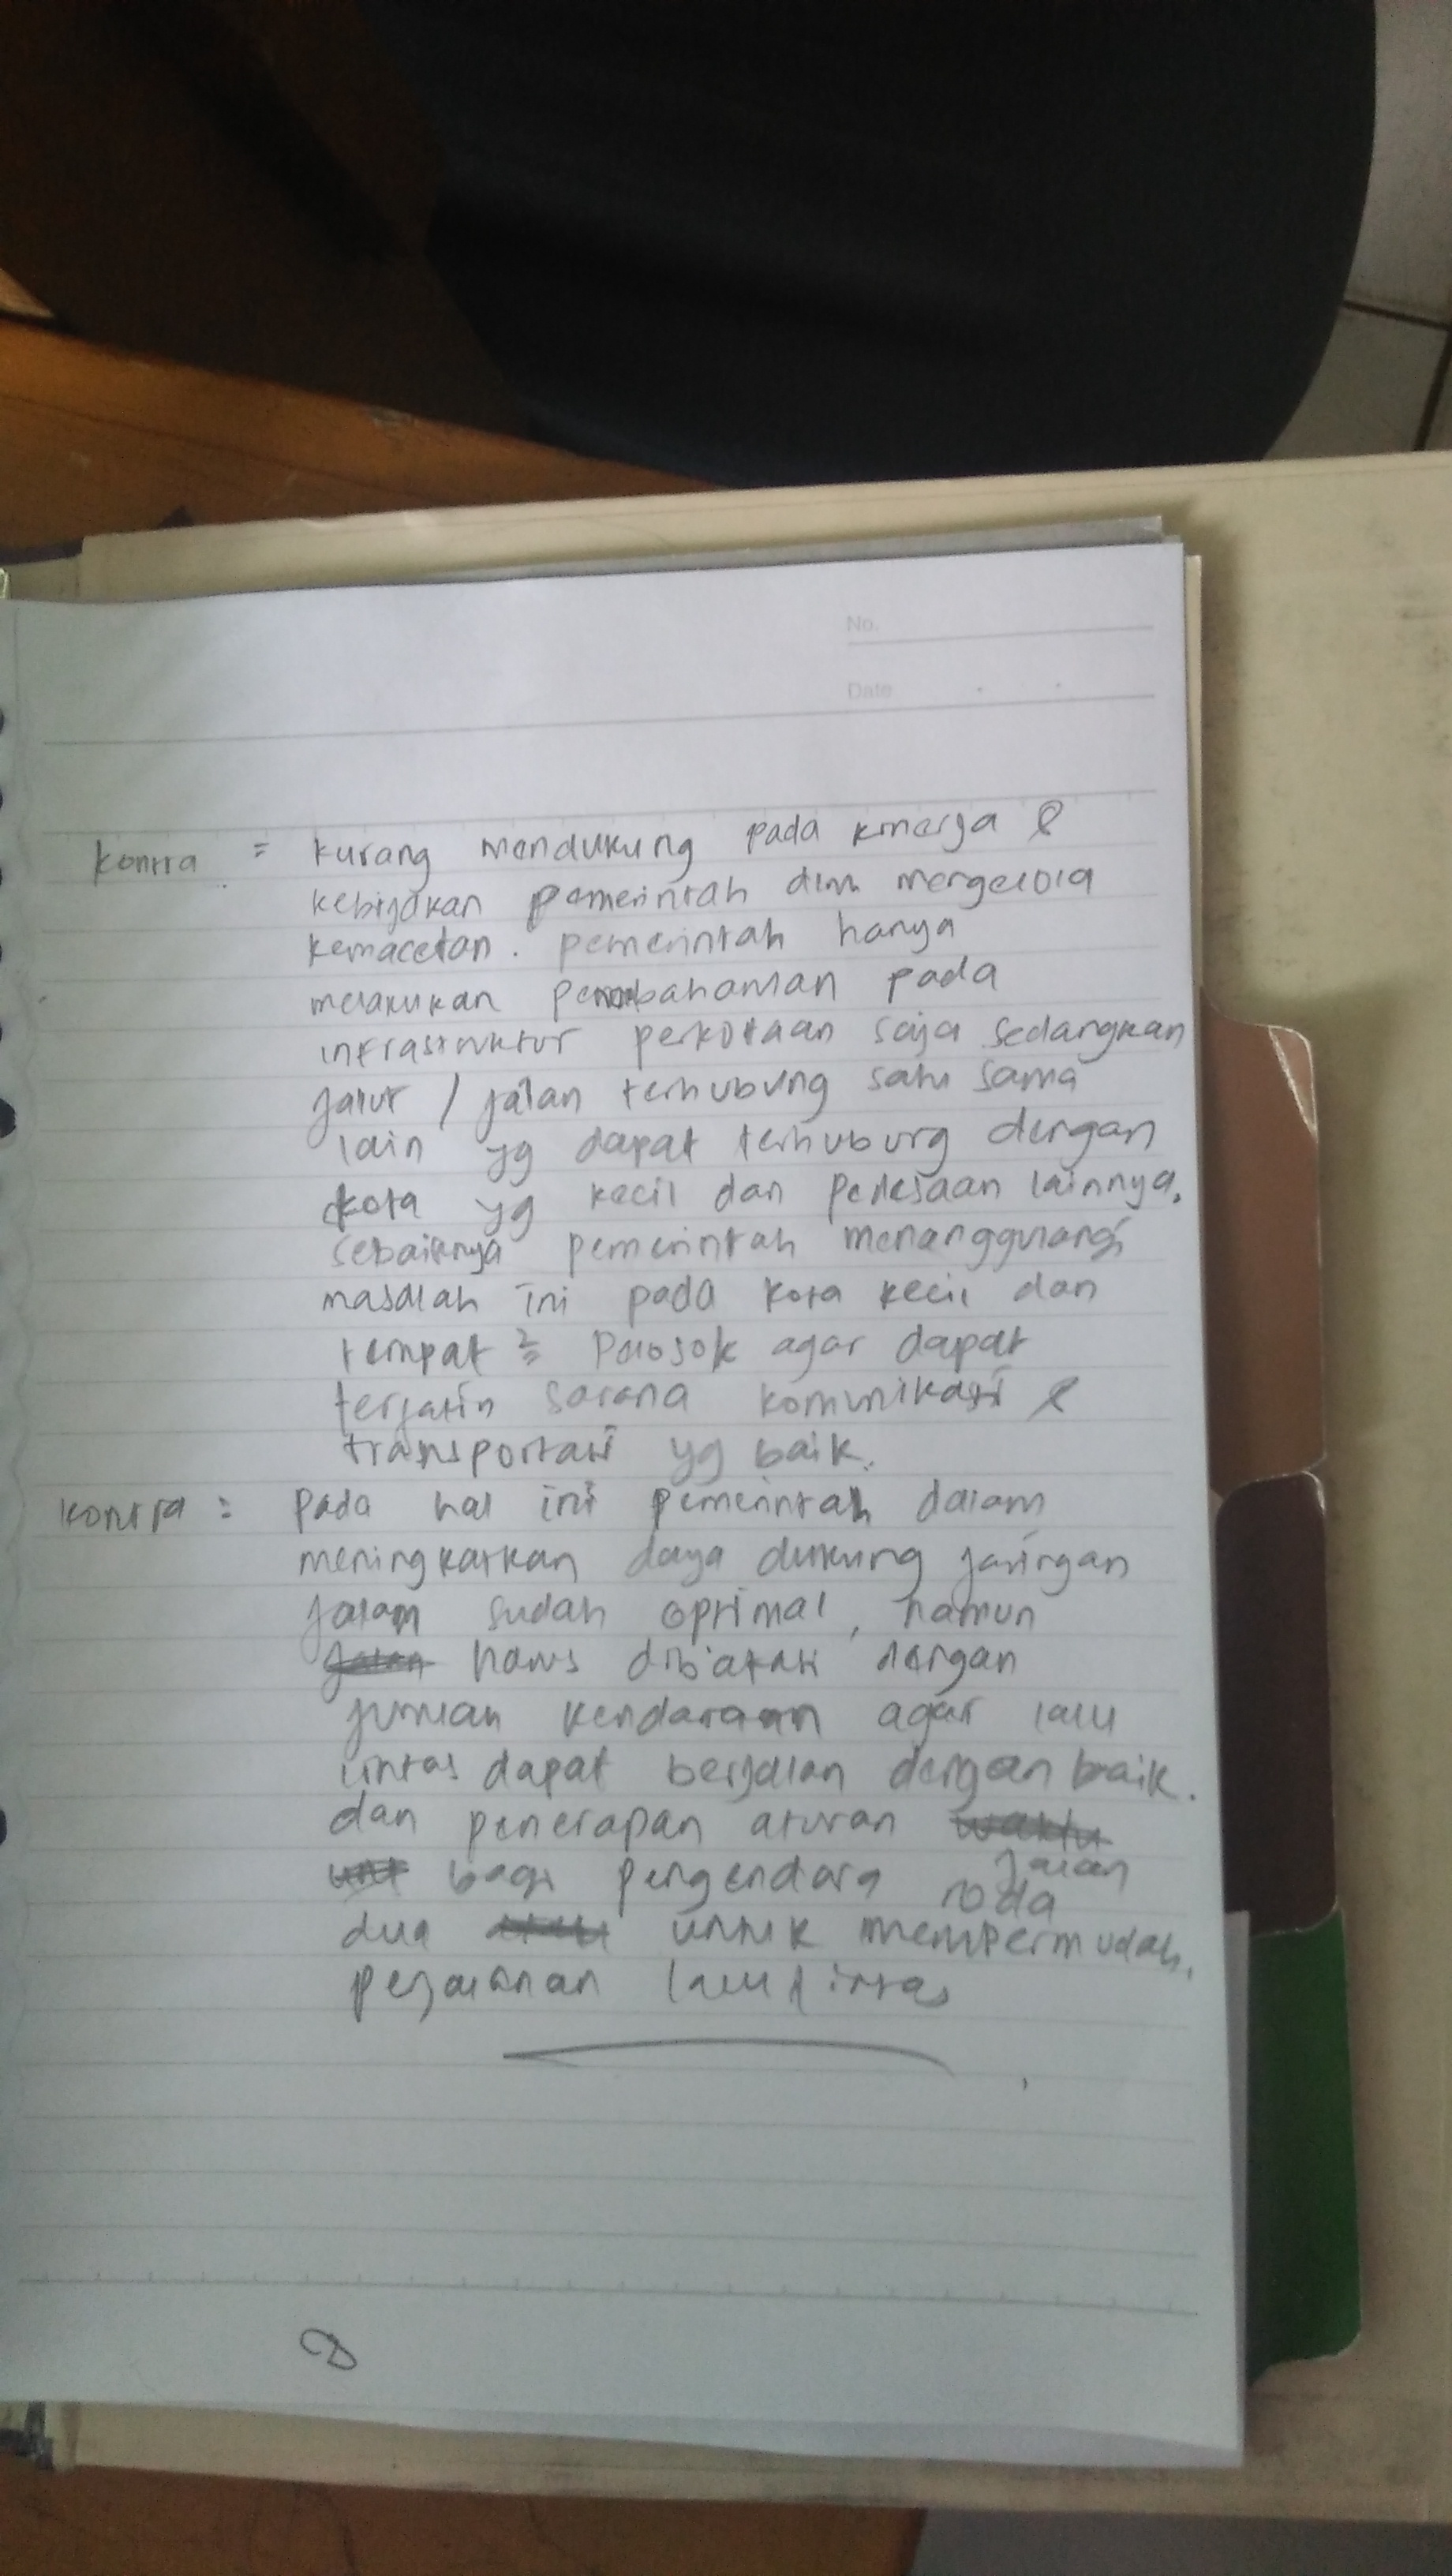 No.
Date
kontra = kurang mendukung pada kinerja &
kebijakan pemerintah dlm mengelola
kemacetan. pemerintah hanya
melakukan pada
infrastruktur perkotaan saja sedangkan
jalur / jalan terhubung satu sama
lain yg dapat terhubung dengan
kota yg kecil dan pedesaan lainnya.
sebaiknya pemerintah menanggulangi
masalah ini pada kota kecil dan
tempat2 pelosok agar dapat
terjalin sarana komunikasi &
transportasi yg baik.
kontra = pada hal ini pemerintah dalam
meningkatkan daya dukung jaringan
jalan sudah optimal, namun
harus dibatasi dengan
jumlah kendaraan agar lalu
lintas dapat berjalan dengan baik.
dan penerapan aturan
jalan
bagi pengendara roda
dua untuk mempermudah
perjalanan lalu lintas